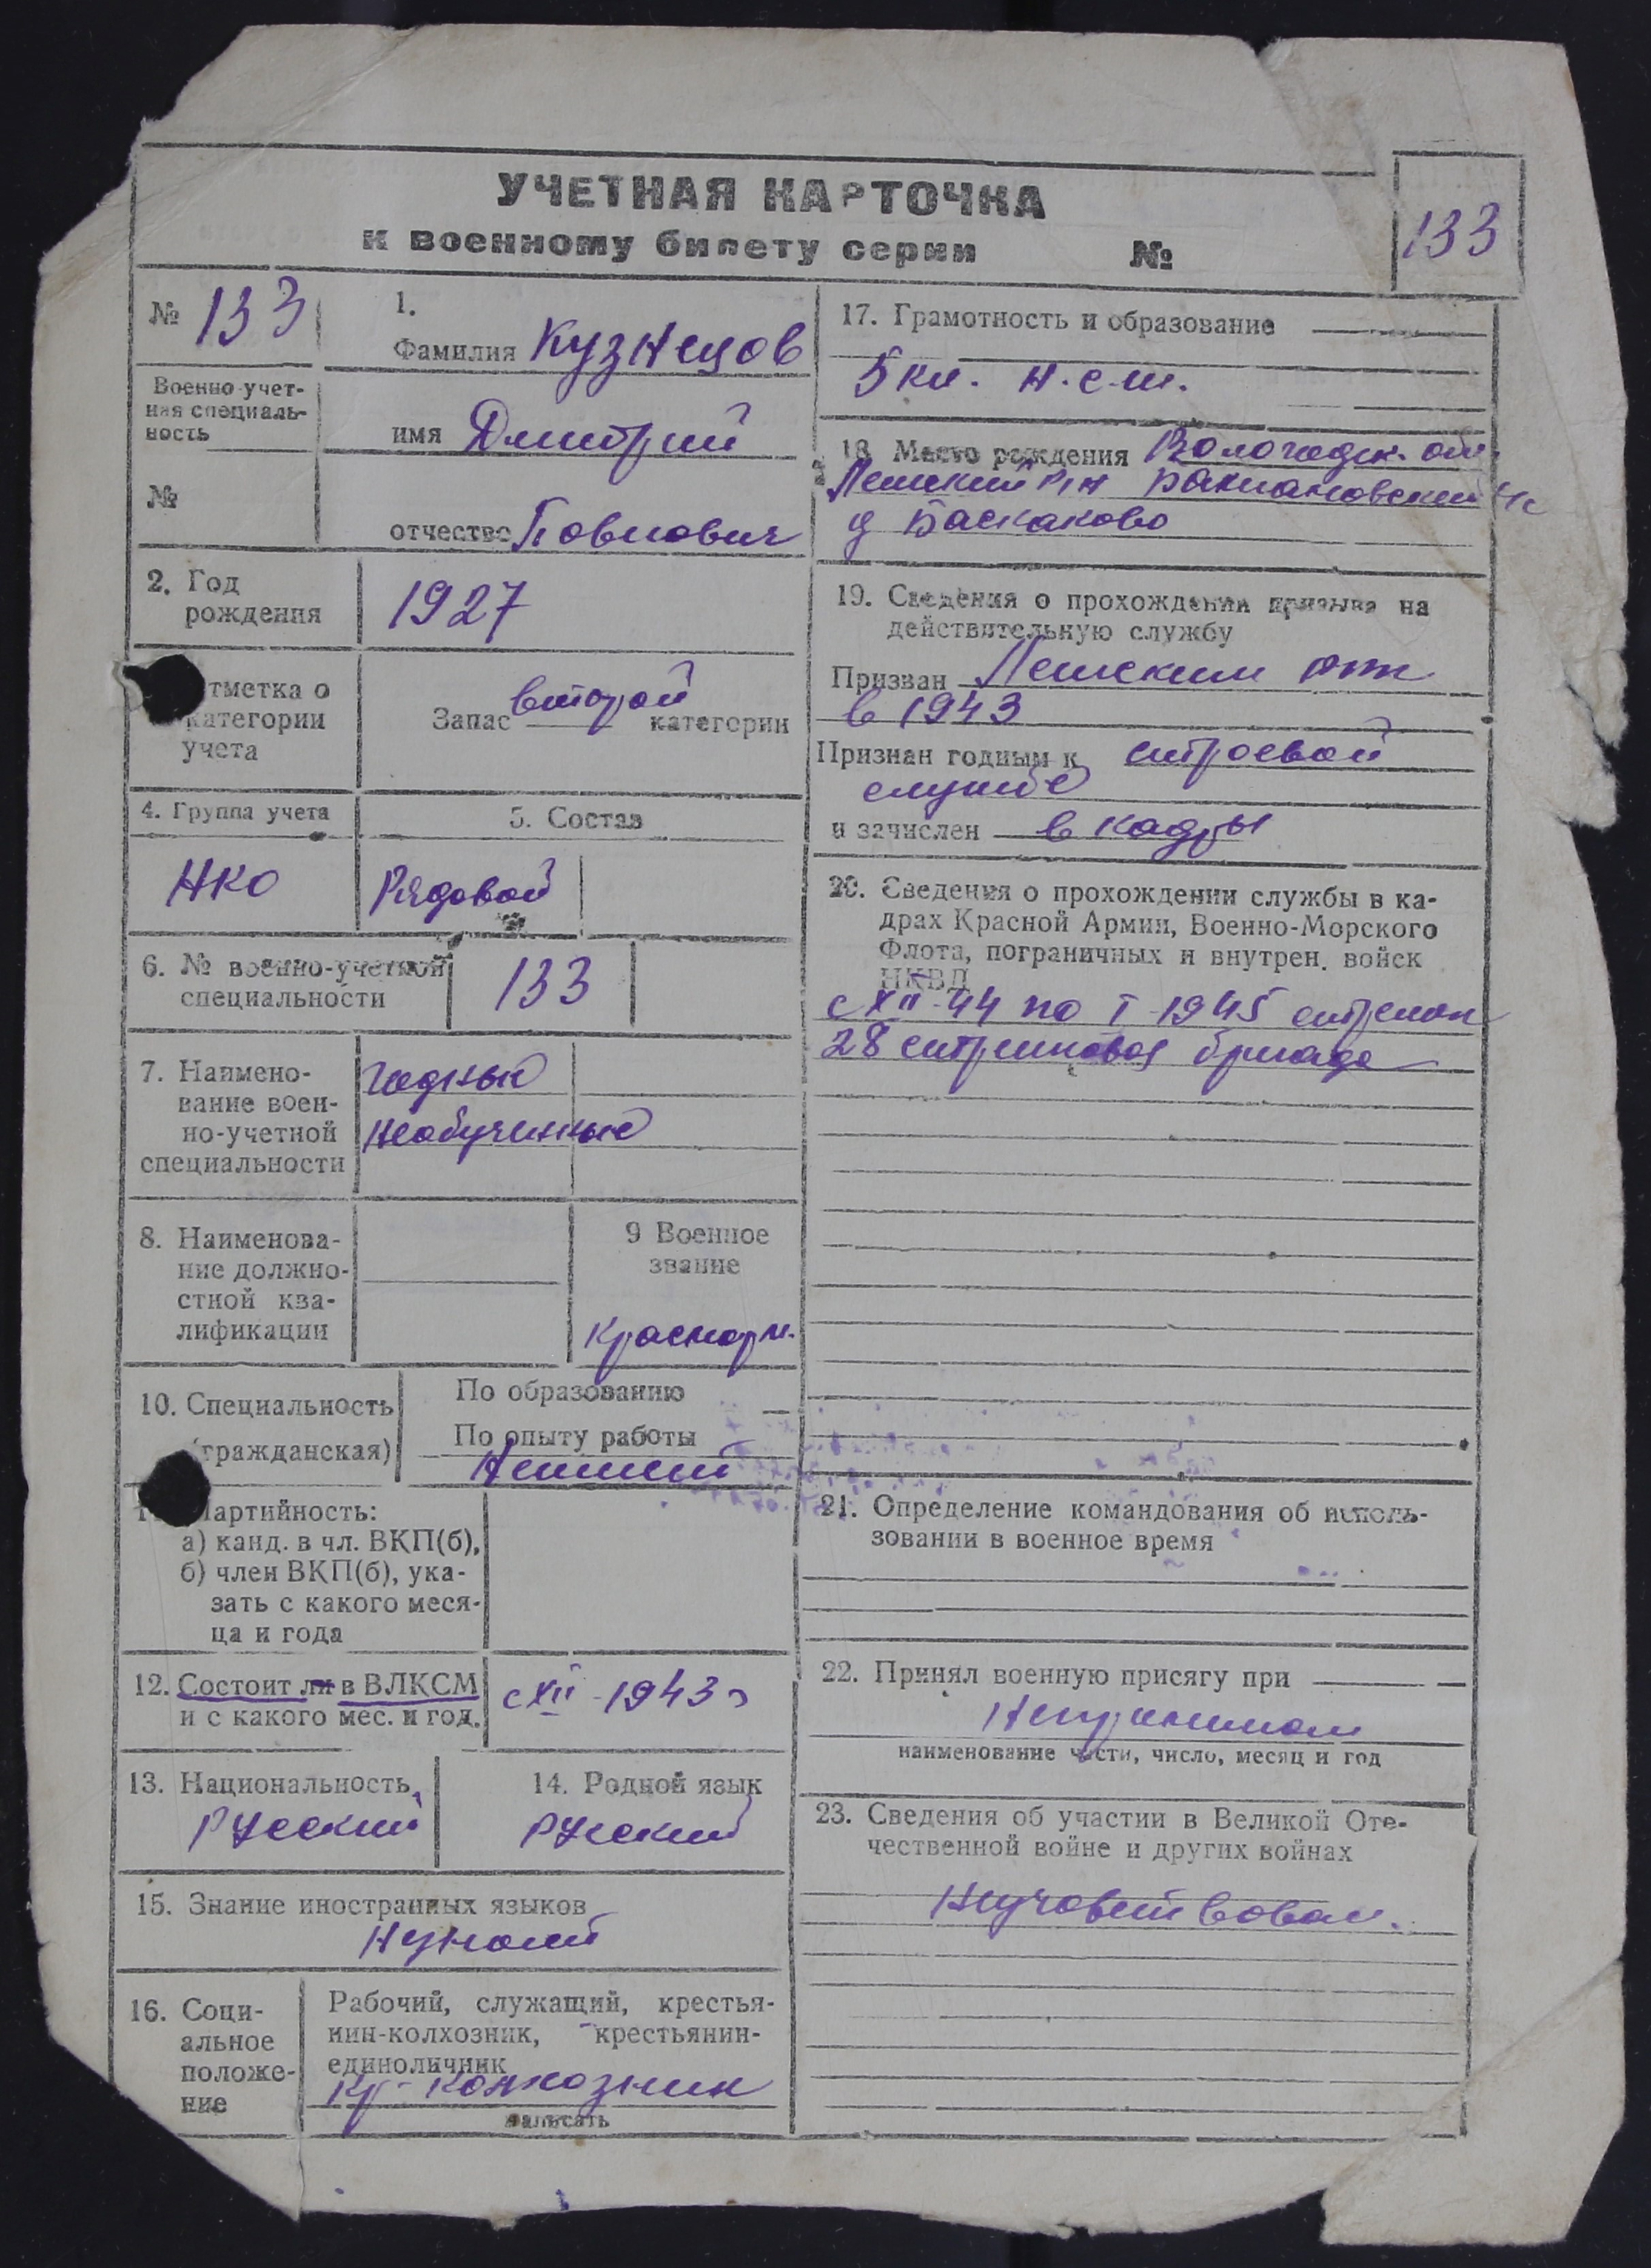 УЧЕТНАЯ КАРТОЧКА
к военному билету серии №
133
№ 133
Военно-учет-
ная специаль-
ность
№
1.
Фамилия Кузнецов
имя Дмитрий
отчество Повлович
2. Год
рождения
1927
тметка о
категории
учета
Запас второй категории
4. Группа учета
5. Состав
НКО
Рядовой
6. № военно-учетной
специальности
133
7. Наимено-
вание воен-
но-учетной
специальности
годный
необученный
8. Наименова-
ние должно-
стной ква-
лификации
9 Военное
звание
Красноарм.
10. Специальность
(гражданская)
По образованию
По опыту работы
Неимеет
Партийность:
а) канд. в чл. ВКП(б),
б) член ВКП(б), ука-
зать с какого меся-
ца и года
12. Состоит ли в ВЛКСМ
и с какого мес. и год.
с XII-1943 г
13. Национальность
Русский
14. Родной язык
Русский
15. Знание иностранных языков
Незнает
16. Соци-
альное
положе-
ние
Рабочий, служащий, крестья-
нин-колхозник, крестьянин-
единоличник
Кр-колхозник
написать
17. Грамотность и образование
5 кл. н.с.ш.
18. Место рождения Вологодск. обл.
д Баскаково
19. Сведения о прохождении призыва на
действительную службу
Призван
в 1943
Признан годным к строевой
службе
и зачислен в кадры
20. Сведения о прохождении службы в ка-
драх Красной Армии, Военно-Морского
Флота, пограничных и внутрен. войск
НКВД
с XII-44 по I-1945 стрелок
28 стрелковая бригада
21. Определение командования об исполь-
зовании в военное время
22. Принял военную присягу при
Непринимал
наименование части, число, месяц и год
23. Сведения об участии в Великой Оте-
чественной войне и других войнах
Неучовствовал.